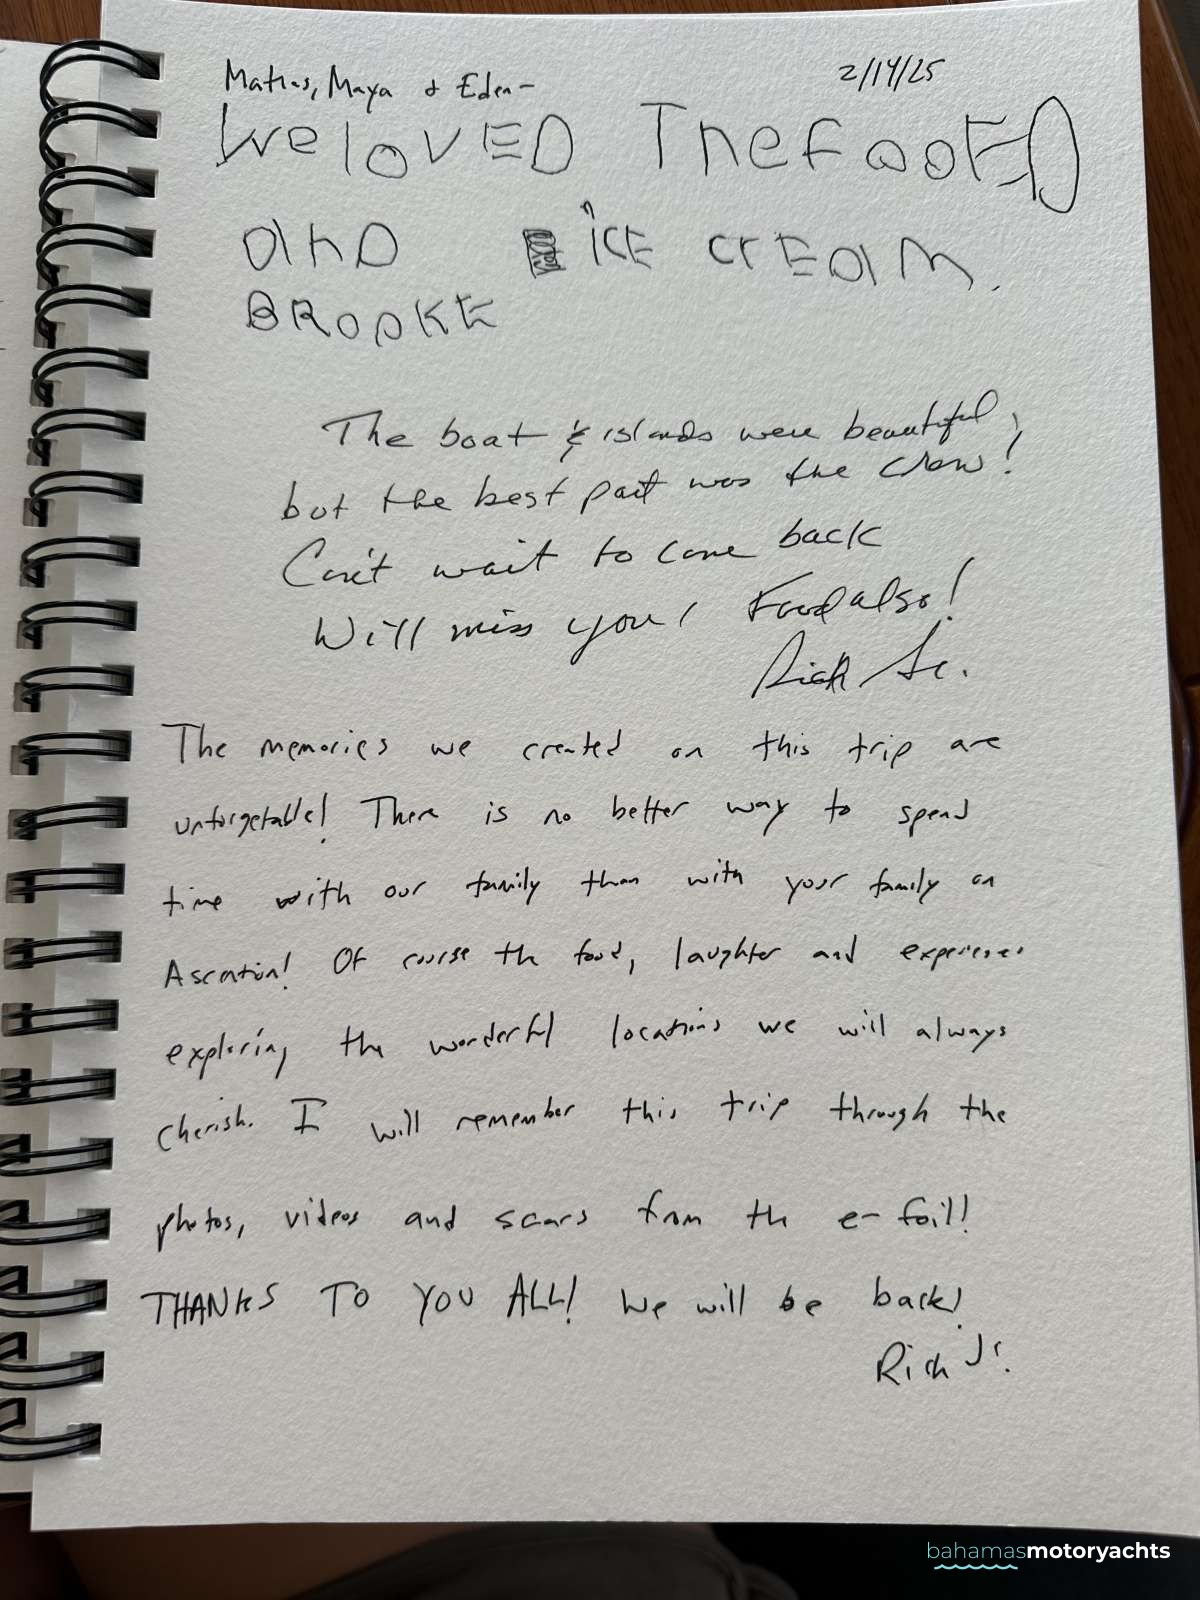 Matias, Maya & Eden - 2/14/25
We loVED The fooED
and iCE crEam.
BROOKE
The boat & islands were beautiful,
but the best part was the crew!
Can't wait to come back
Will miss you! Food also!
Rick Sr.
The memories we created on this trip are
unforgetable! There is no better way to spend
time with our family than with your family on
Ascention! Of course the food, laughter and experiences
exploring the wonderful locations we will always
cherish. I will remember this trip through the
photos, videos and scars from the e-foil!
THANKS TO YOU ALL! We will be back!
Rich Jr.
bahamasmotoryachts